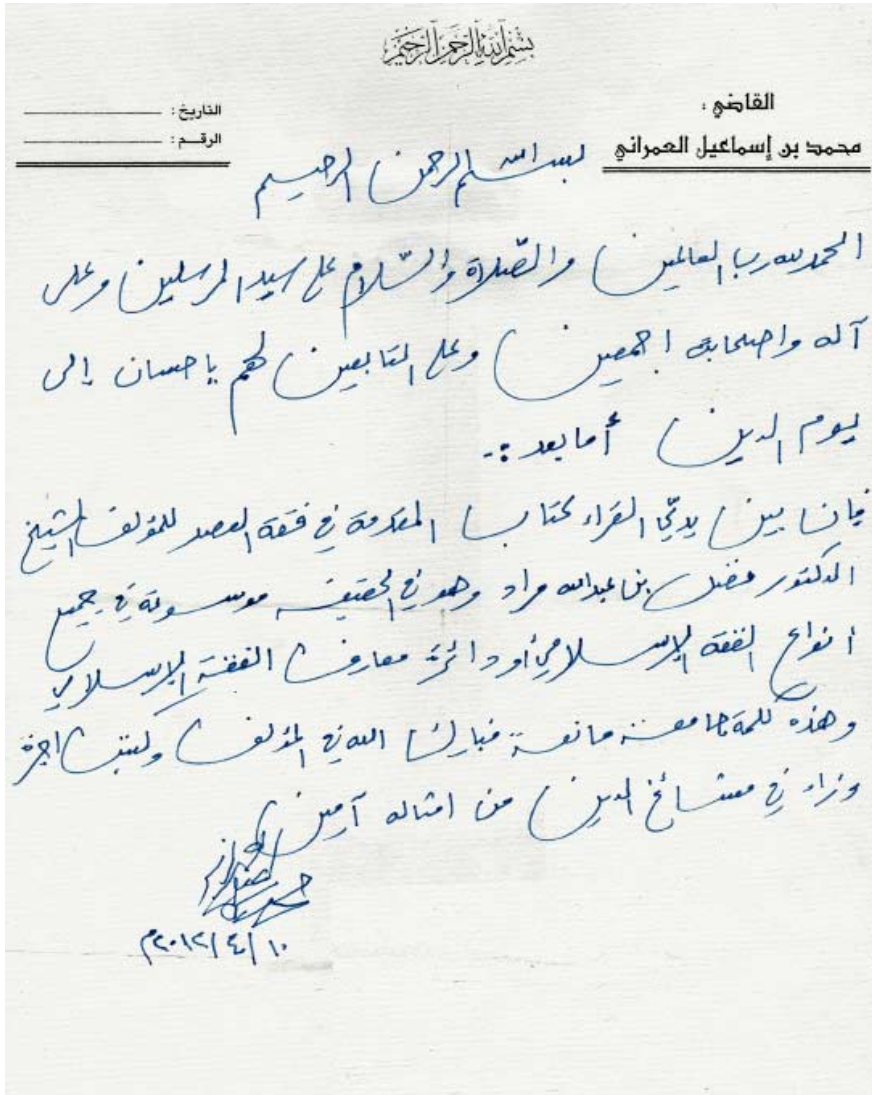 بسم الله الرحمن الرحيم
القاضي :
محمد بن إسماعيل العمراني
التاريخ :
الرقم :
بسم الله الرحمن الرحيم
الحمد لله رب العالمين والصّلاة والسّلام على سيد المرسلين وعلى
آله واصحابه اجمعين وعلى التابعين لهم باحسان إلى
يوم الدين أما بعد :-
فإن بين يديّ القراء كتاب المقدمة في فقه العصر للمؤلف الشيخ
الدكتور فضل بن عبدالله مراد وهو في الحقيقة موسوعة في جميع
أنواع الفقه الإسلامي أو دائرة معارف الفقه الإسلامي
وهذه كلمة جامعة مانعة فبارك الله في المؤلف وكتب اجره
وزاد في مشائخ الدين من امثاله آمين
١٠/٤/٢٠١٢م